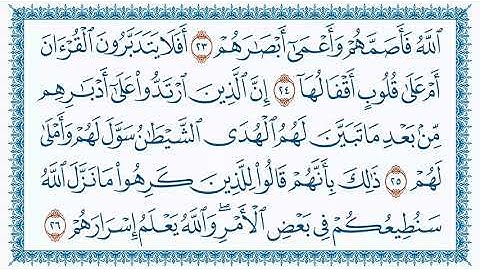 اللَّهُ فَأَصَمَّهُمْ وَأَعْمَىٰ أَبْصَارَهُمْ ٢٣ أَفَلَا يَتَدَبَّرُونَ الْقُرْءَانَ
أَمْ عَلَىٰ قُلُوبٍ أَقْفَالُهَا ٢٤ إِنَّ الَّذِينَ ارْتَدُّوا عَلَىٰ أَدْبَارِهِم
مِّنۢ بَعْدِ مَا تَبَيَّنَ لَهُمُ الْهُدَى الشَّيْطَانُ سَوَّلَ لَهُمْ وَأَمْلَىٰ
لَهُمْ ٢٥ ذَٰلِكَ بِأَنَّهُمْ قَالُوا لِلَّذِينَ كَرِهُوا مَا نَزَّلَ اللَّهُ
سَنُطِيعُكُمْ فِي بَعْضِ الْأَمْرِ ۖ وَاللَّهُ يَعْلَمُ إِسْرَارَهُمْ ٢٦